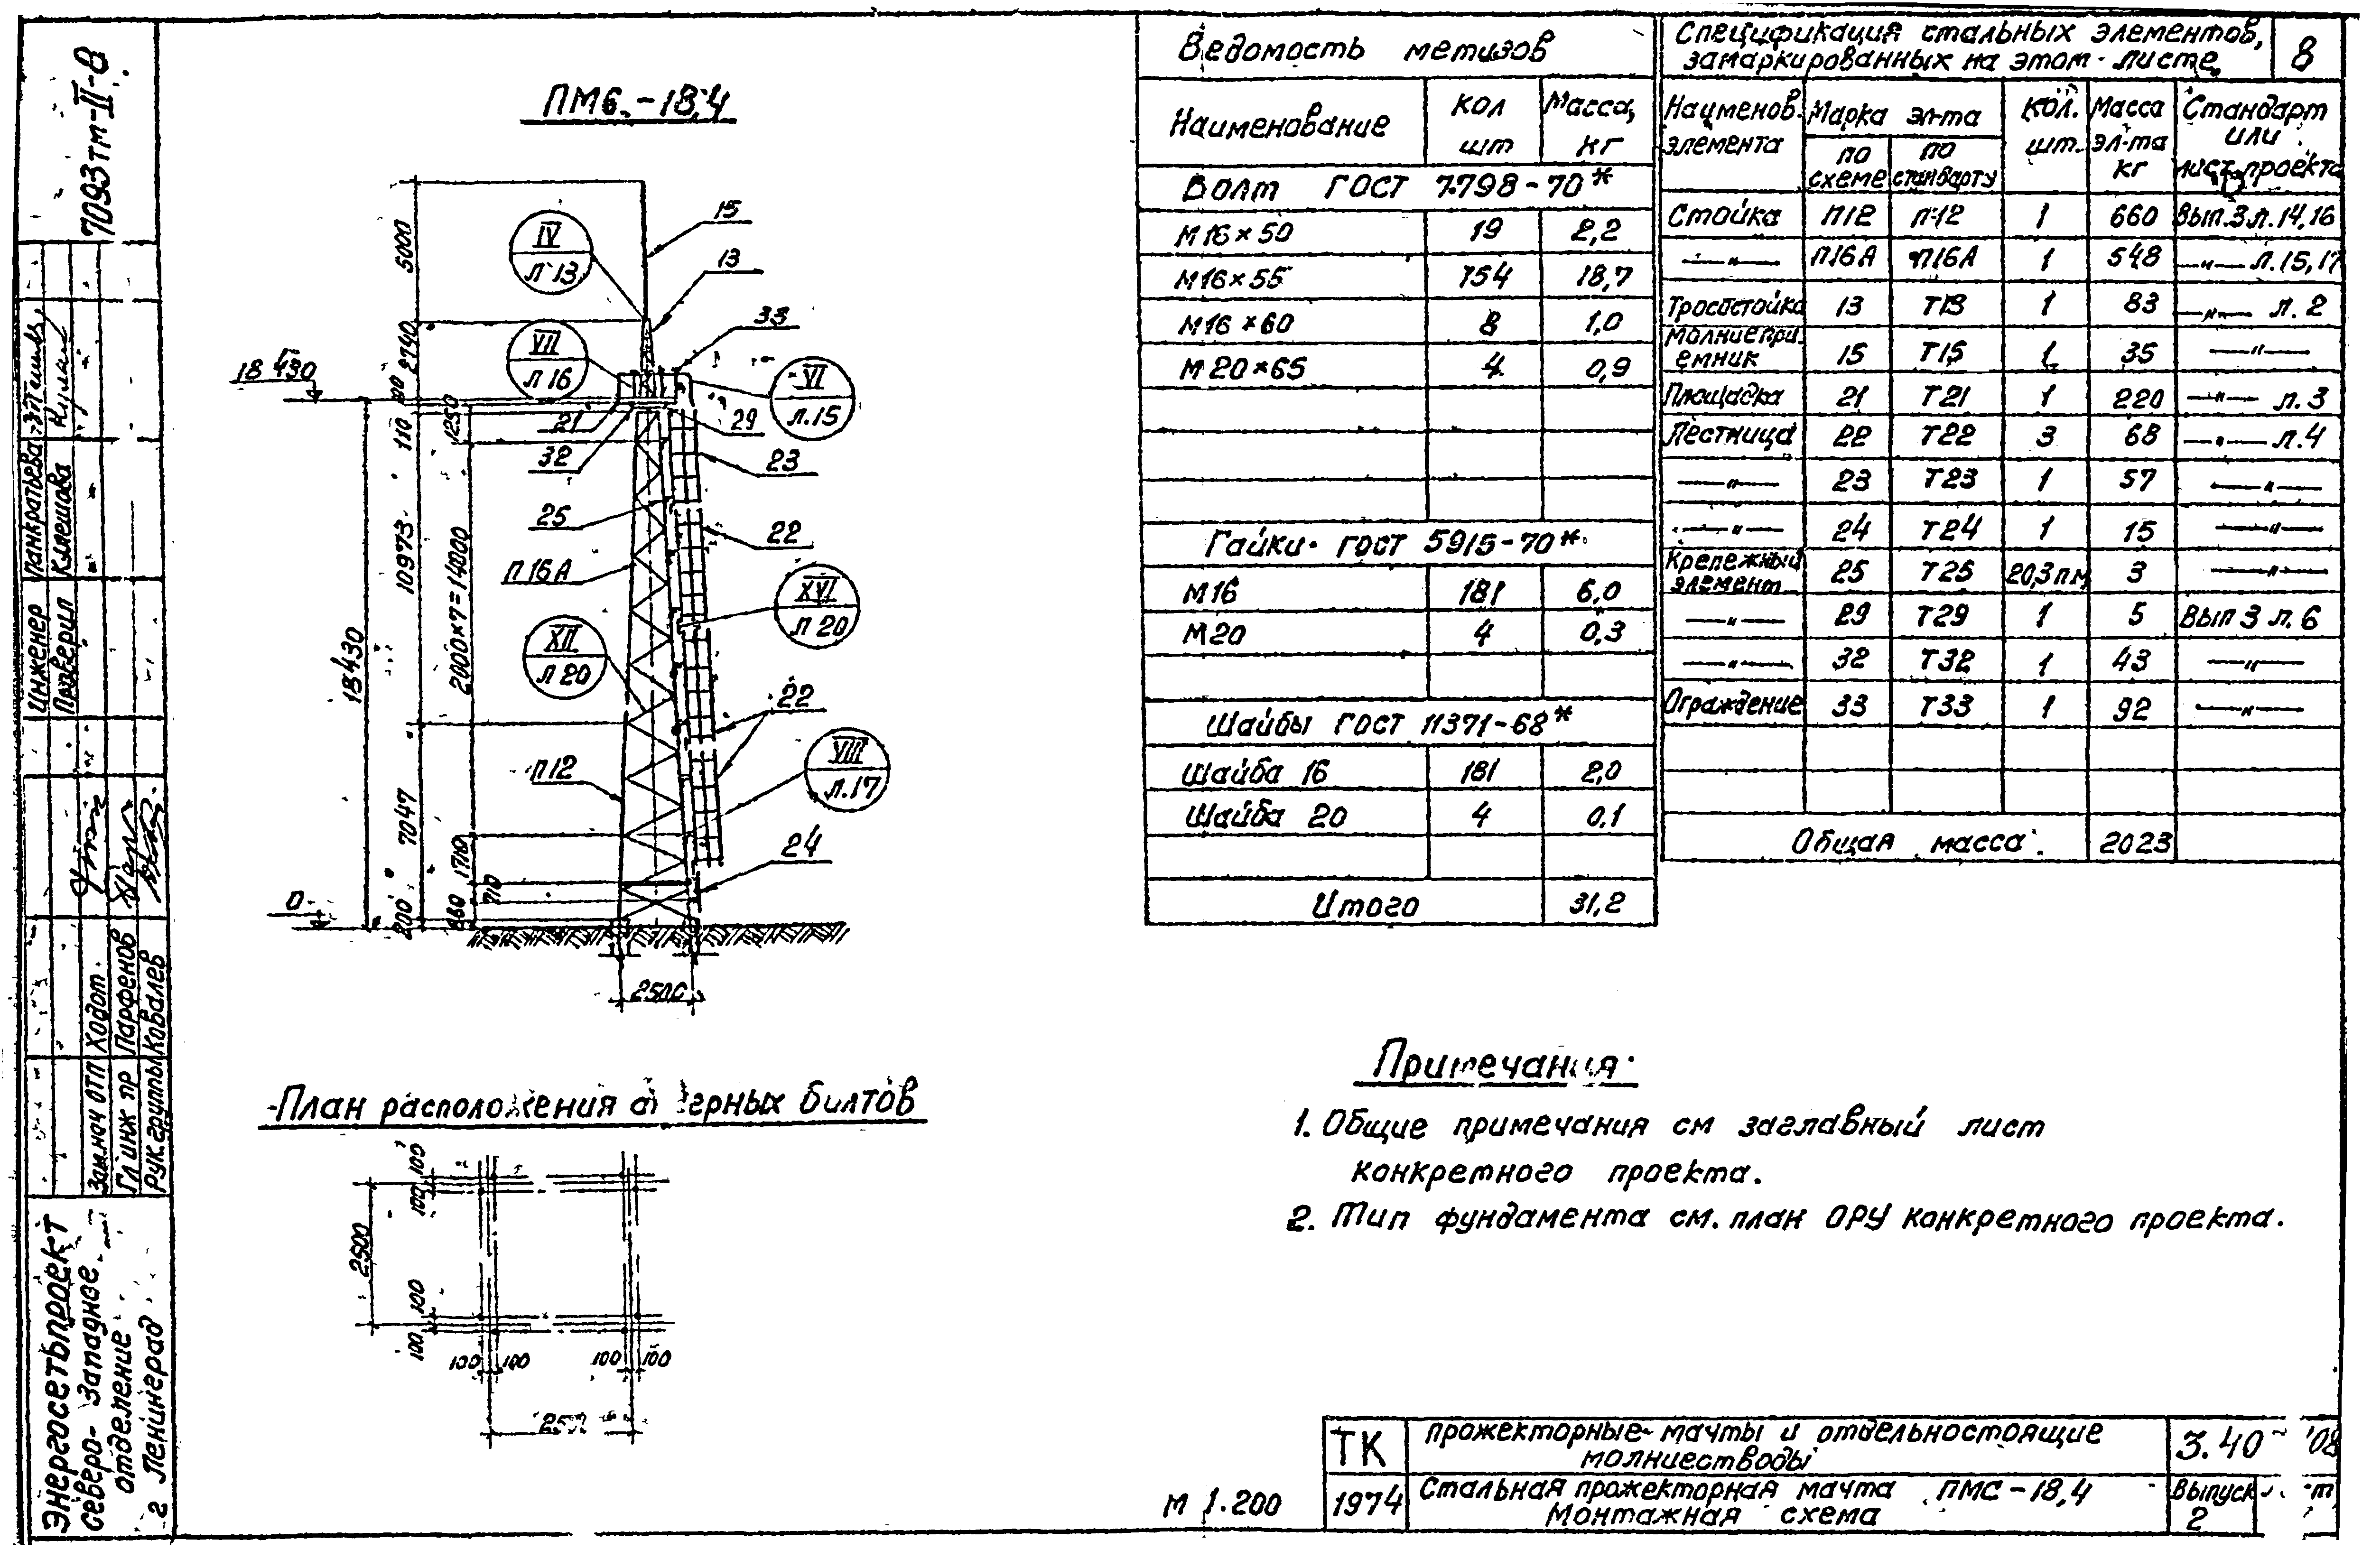 7093тм-II-8
Инженер Панкратьева
Проверил Кулешова
Зам.нач ОТП Ходот
Гл инж пр Парфенов
Рук группы Ковалев
Энергосетьпроект
Северо-Западное
отделение
г Ленинград
ПМ6.-18,4
IV
л 13
15
13
VII
л 16
33
VI
л.15
18 430
21
32
29
23
25
22
П16А
XVI
л 20
XII
л 20
22
П12
VIII
л.17
24
0
5000
2740
110
1250
10973
2000×7=14000
18430
7047
1710
710
200
2500
План расположения
100 100
2500
100 100
100 100 100 100
Ведомость метизов
Наименование Кол шт Масса, кг
Болт ГОСТ 7798-70*
М16×50 19 2,2
М16×55 154 18,7
М16×60 8 1,0
М20×65 4 0,9
Гайки ГОСТ 5915-70*
М16 181 6,0
М20 4 0,3
Шайбы ГОСТ 11371-68*
Шайба 16 181 2,0
Шайба 20 4 0,1
Итого 31,2
Спецификация стальных элементов,
замаркированных на этом листе 8
Наименов. элемента Марка эл-та по схеме по стандарту Кол. шт. Масса эл-та кг Стандарт или лист проекта
Стойка П12 П12 1 660 Вып.3 л.14,16
—"— П16А П16А 1 548 —"— л.15,17
Тросостойка 13 Т13 1 83 —"— л.2
Молниеприемник 15 Т15 1 35 —"—
Площадка 21 Т21 1 220 —"— л.3
Лестница 22 Т22 3 68 —"— л.4
—"— 23 Т23 1 57 —"—
—"— 24 Т24 1 15 —"—
Крепежный элемент 25 Т25 20,3 п.м 3 —"—
—"— 29 Т29 1 5 Вып 3 л.6
—"— 32 Т32 1 43 —"—
Ограждение 33 Т33 1 92 —"—
Общая масса 2023
Примечания:
1. Общие примечания см заглавный лист
конкретного проекта.
2. Тип фундамента см. план ОРУ конкретного проекта.
М 1:200
ТК
1974
Прожекторные мачты и отдельностоящие
молниеотводы
Стальная прожекторная мачта ПМС-18,4
Монтажная схема
3.40
Выпуск
2